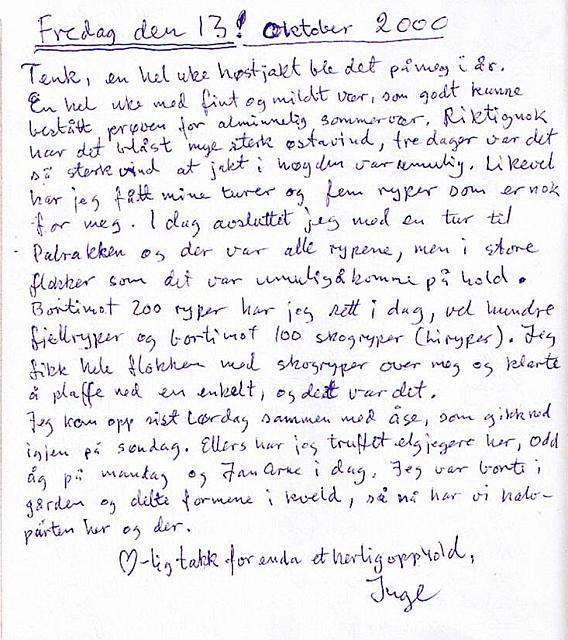 Fredag den 13! oktober 2000
Tenk, en hel uke høstjakt ble det på meg i år.
En hel uke med fint og mildt vær, som godt kunne
bestått prøven for alminnelig sommervær. Riktignok
har det blåst mye sterk østavind, tre dager var det
så sterk vind at jakt i høyden var umulig. Likevel
har jeg fått mine turer og fem ryper som er nok
for meg. I dag avsluttet jeg med en tur til
og der var alle rypene, men i store
flokker som det var umulig å komme på hold.
Bortimot 200 ryper har jeg sett i dag, vel hundre
fjellryper og bortimot 100 skogryper (liryper). Jeg
fikk hele flokken med skogryper over meg og klarte
å plaffe ned en enkelt, og det var det.
Jeg kom opp sist lørdag sammen med Åse, som gikk ned
igjen på søndag. Ellers har jeg truffet elgjegere her, Odd
Åg på mandag og Jan Arne i dag. Jeg var borte i
gården og delte formene i kveld, så nå har vi halv-
parten her og der.
♡-lig takk for enda et herlig opphold,
Inge